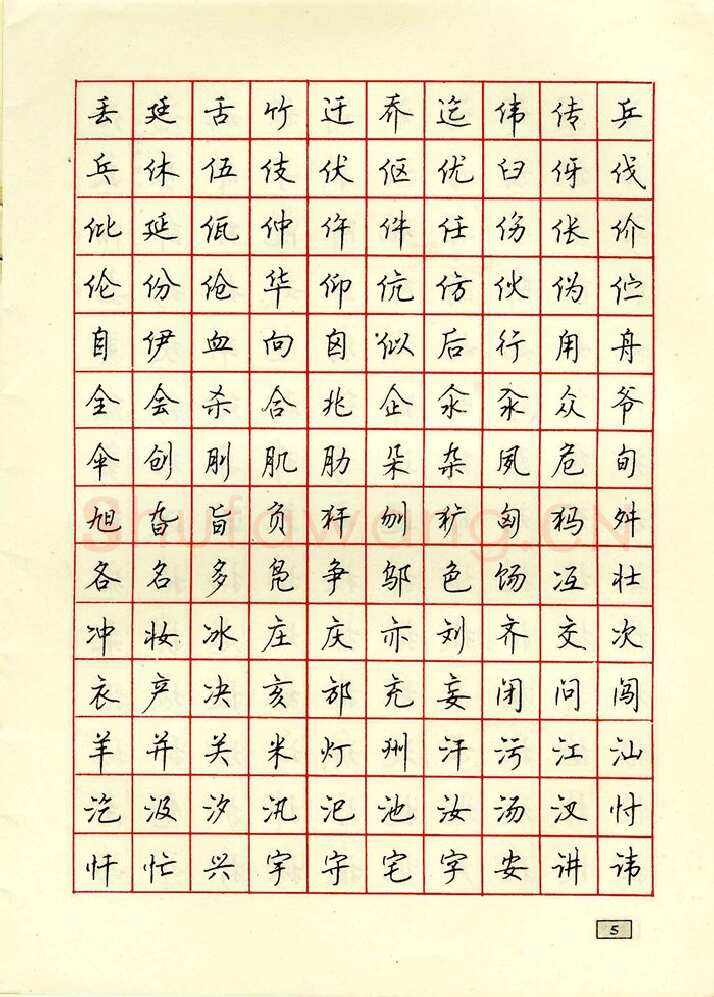 丢廷舌竹迁乔迄伟传乒
乓休伍伎伏伛优臼伢伐
仳延佤仲仵件任伤伥价
伦份伧华仰伉仿伙伪伫
自伊血向囟似后行甪舟
全会杀合兆企汆氽众爷
伞创刖肌肋朵杂夙危旬
旭旮旨负犴刎犷匈犸舛
各名多凫争邬色饧冱壮
冲妆冰庄庆亦刘齐交次
衣产决亥邡充妄闭问闯
羊并关米灯州汗污江汕
汔汲汐汛汜池汝汤汊忖
忏忙兴宇守宅字安讲讳
5
Shufawang.CN